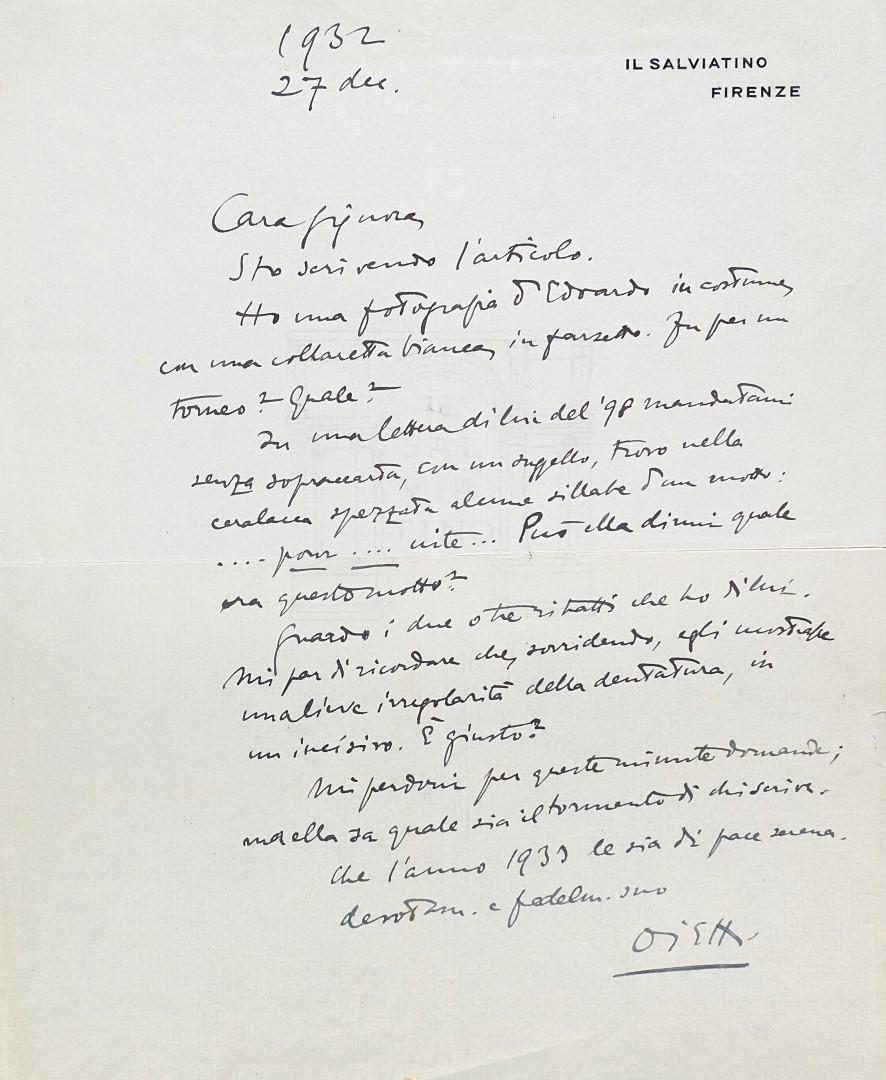 1932
27 dec.
IL SALVIATINO
FIRENZE
Cara Signora,
Sto scrivendo l'articolo.
Ho una fotografia d'Edoardo in costume,
con una collaretta bianca, in farsetto. Fu per un
torneo? Quale?
In una lettera di lui del '98 mandatami
senza sopraccarta, con un suggello, trovo nella
ceralacca spezzata alcune sillabe d'un motto:
.... pour .... uite... Può ella dirmi quale
era questo motto?
Guardo i due o tre ritratti che ho di lui.
Mi par di ricordare che, sorridendo, egli mostrasse
una lieve irregolarità della dentatura, in
un incisivo. È giusto?
Mi perdoni per queste minute domande;
ma ella sa quale sia il tormento di chi scrive.
Che l'anno 1933 le sia di pace serena.
devotam. e fedelm. suo
Ojetti